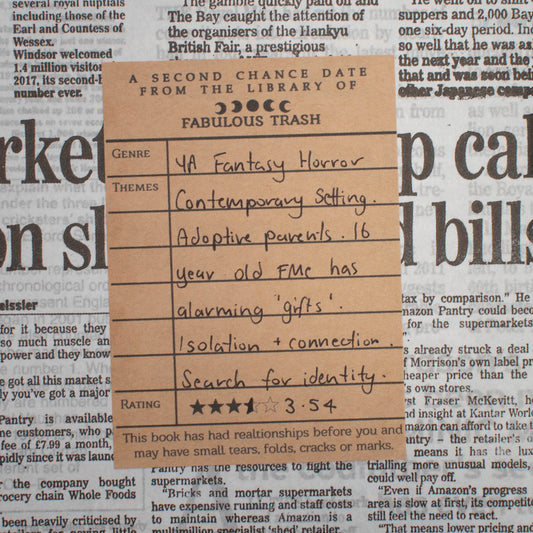 several royal nuptials
including those of the
Earl and Countess of
Wessex.
Windsor welcomed
1.4 million
2017, its
number ever.
The gamble quickly paid off and
The Bay caught the attention of
the organisers of the Hankyu
British Fair, a prestigious
suppers and 2,000 Bay
one six-day period.
so well that he was as
the next year and the
that and was soon
other Japanese
A SECOND CHANCE DATE
FROM THE LIBRARY OF
FABULOUS TRASH
GENRE YA Fantasy Horror
THEMES Contemporary Setting.
Adoptive parents. 16
year old FMC has
alarming 'gifts'.
Isolation + connection.
Search for identity.
RATING ★★★⯪☆ 3.54
This book has had realtionships before you and
may have small tears, folds, cracks or marks.
cal
on
bills
for it because they
so much muscle an
power and they know
e got all this market s
ly you've got a major
Pantry is available
me customers, who p
fee of £7.99 a month,
pidly since it was
r the company bought
rocery chain Whole Foods
been heavily criticised by
tax by comparison." He
mazon Pantry could
for the supermarkets
s already struck a deal
f Morrison's own label
heaper price than the
's own stores.
Fraser McKevitt, h
nd insight at Kantar World
mazon can afford to take
- the retailer's
means it has the
trialling more unusual models,
could well pay off.
"Even if Amazon's progress
area is slow at first, its
still feel the need to react.
"That means lower pricing and
Pantry has the resources to fight the
supermarkets.
"Bricks and mortar supermarkets
have expensive running and staff costs
to maintain whereas Amazon is a
multimillion specialist 'shed' retailer.